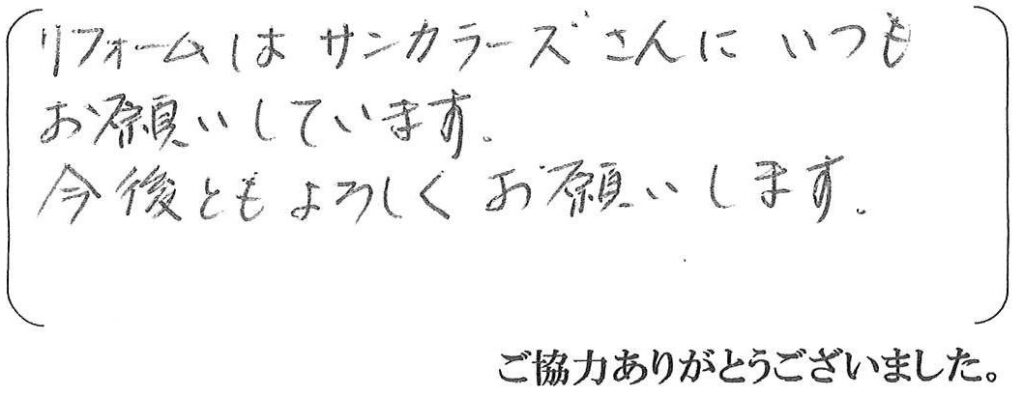 リフォームは サンカラーズさんに いつも
お願いしています.
今後ともよろしく お願いします.
ご協力ありがとうございました。